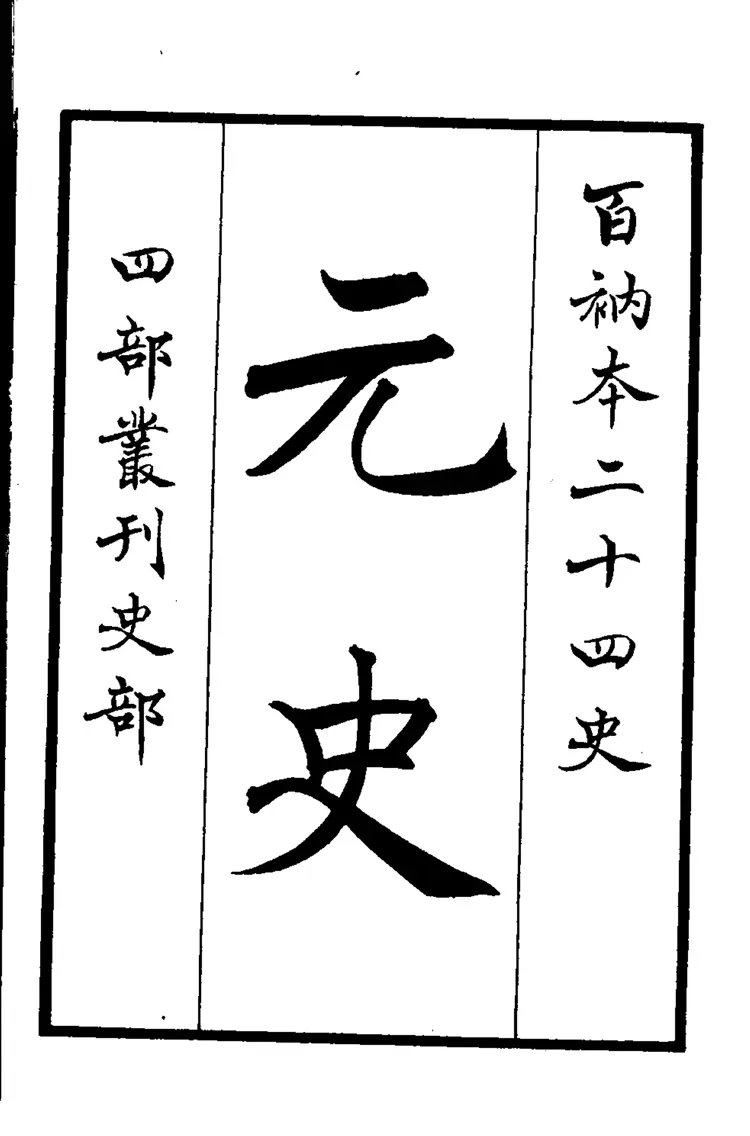 百衲本二十四史
元史
四部叢刊史部